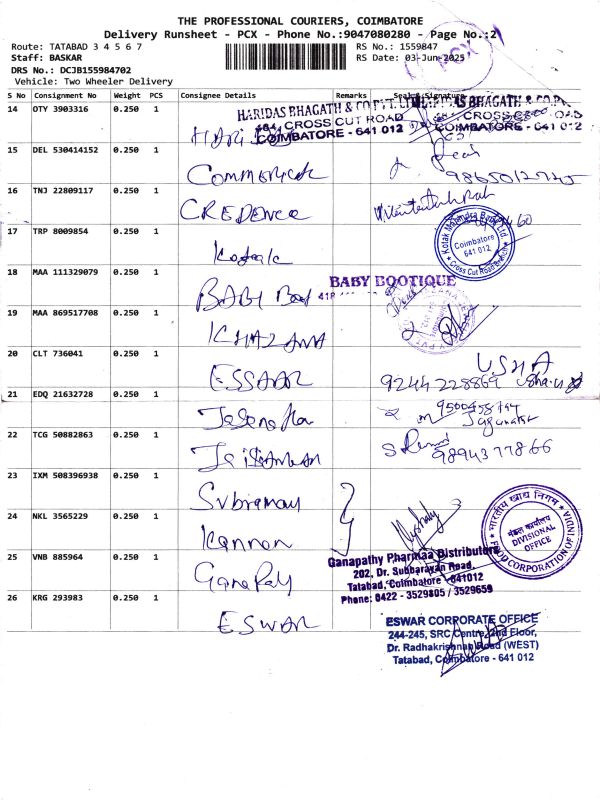 THE PROFESSIONAL COURIERS, COIMBATORE
Delivery Runsheet - PCX - Phone No.:9047080280 - Page No.:2
Route: TATABAD 3 4 5 6 7
RS No.: 1559847
Staff: BASKAR
RS Date: 03-Jun-2025
PCX
DRS No.: DCJB155984702
Vehicle: Two Wheeler Delivery
S No Consignment No Weight PCS Consignee Details Remarks Seal & Signature
14 OTY 3903316 0.250 1
HARIDAS BHAGATH & CO PVT. LTD
484 CROSS CUT ROAD
COIMBATORE - 641 012
15 DEL 530414152 0.250 1 Commerical
16 TNJ 22809117 0.250 1 CREDENCE
17 TRP 8009854 0.250 1 Kotak
Kotak Mahindra Bank Ltd.
Coimbatore
641 012
Cross Cut Road Branch
18 MAA 111329079 0.250 1 BABY Boot
BABY BOOTIQUE
19 MAA 869517708 0.250 1 KHAZANA
20 CLT 736041 0.250 1 ESSAAR
USHA
9244228869
21 EDQ 21632728 0.250 1
22 TCG 50882863 0.250 1
9894377866
23 IXM 508396938 0.250 1 Subramay
24 NKL 3565229 0.250 1 Kannan
भारतीय खाद्य निगम
मंडल कार्यालय
DIVISIONAL
OFFICE
FOOD CORPORATION OF INDIA
25 VNB 885964 0.250 1 Ganapaly
Ganapathy Pharmaa Distributors
202, Dr. Subbarayan Road,
Tatabad, Coimbatore - 641012
Phone: 0422 - 3529805 / 3529659
26 KRG 293983 0.250 1 ESWAR
ESWAR CORPORATE OFFICE
244-245, SRC Centre, 2nd Floor,
Dr. Radhakrishnan Road (WEST)
Tatabad, Coimbatore - 641 012